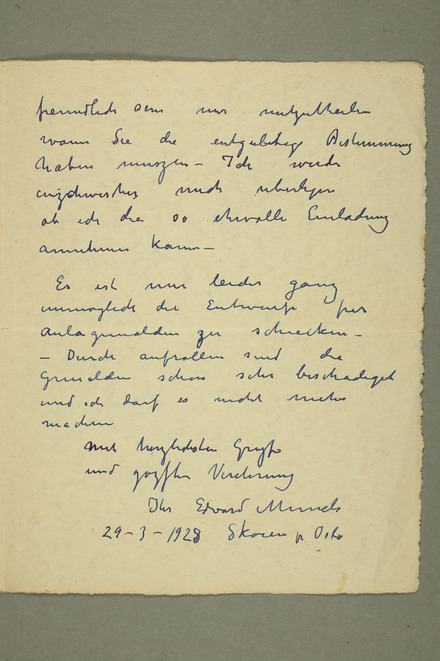 freundlich sein mir mitzutheilen
wann Sie die entgultige Bestimmung
haben muszen – Ich werde
inzwischen mich uberlegen
ob ich die so ehrvolle Einladung
annehmen kann –
Es ist mir leider ganz
unmoglich die Entwurfe fur
Aulagemalden zu schicken –
– Durch aufrollen sind die
Gemalden schon sehr beschadiget
und ich darf es nicht mehr
machen
mit herzlichsten Gruße
und Verehrung
Ihr Edvard Munch
29 – 3 – 1928 Skøien p Oslo